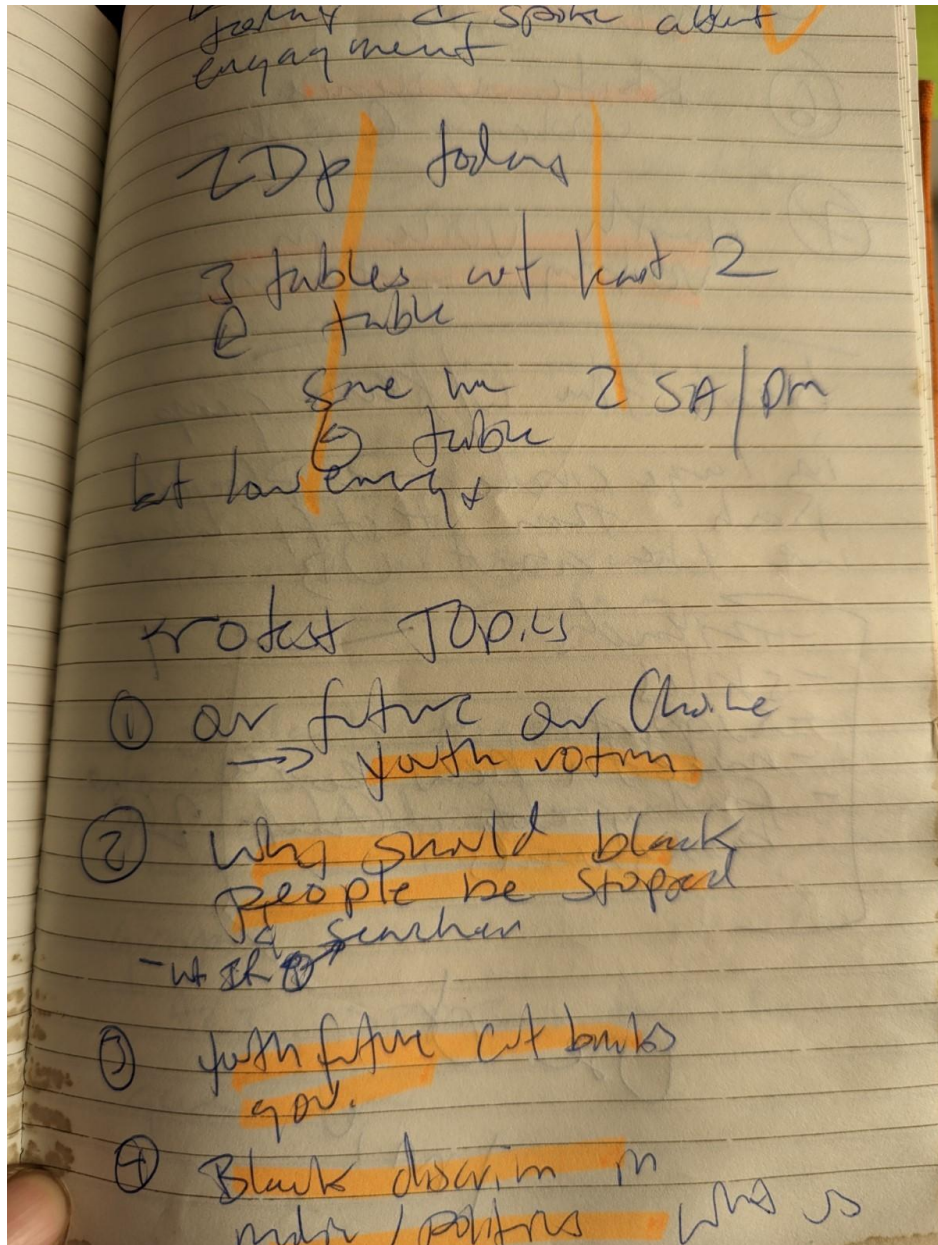 today & spoke about
engagment
today
3 tables at least 2
@ table
2 SA/DM
@ table
but low energy
Protest Topics
① our future our Choice
→ youth voting
② why should black
people be stopped
& searched
③ youth future cut banks
gov.
④ Black discrim in
media/politics who is